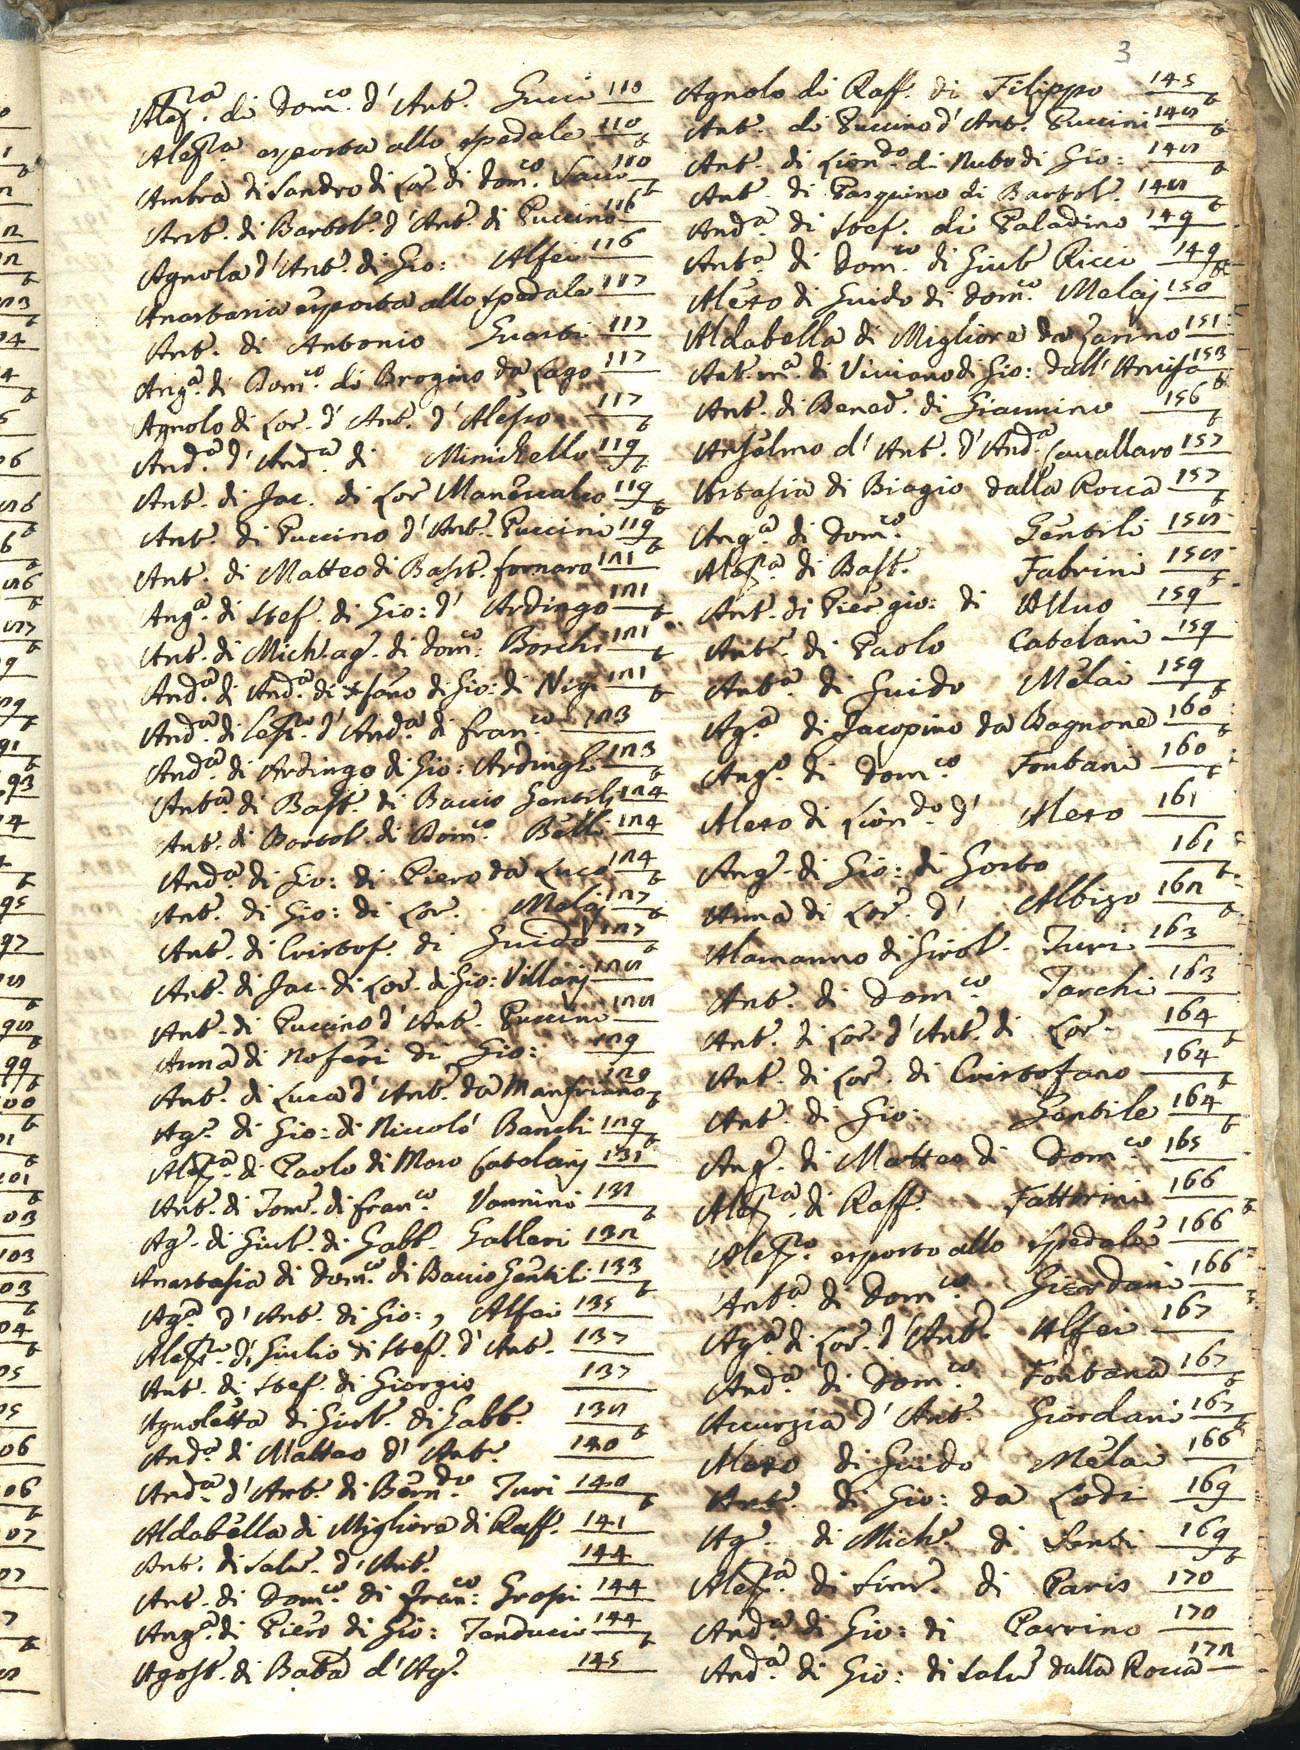 3
Aless.ª di Dom.co d'Ant.º Succi 110
Aless.ª esposta allo spedale 110 t
Ambra di Sandro di Lor.º di Dom.co 110 t
Ant.º di Bartol.º d'Ant.º di Puccino 116 t
Agnola d'Ant.º di Gio: Alfei 116
Anastasia esposta allo spedale 117
Ant.º di Antonio Guasti 117
Ang.ª di Dom.co di Brogino da Lago 117
Agnolo di Lor. d'Ant.º d'Alesso 117 t
And.ª d'And.ª di Minichello 119 t
Ant.º di Jac. di Lor. Manescalco 119 t
Ant.º di Puccino d'Ant.º Puccini 119 t
Ant.º di Matteo di Bast.º fornaro 121
Ang.ª di Stef. di Gio: d' Ardingo 121 t
Ant.º di Mich.ag. di Dom.co Boschi 121 t
And.ª di And.ª di Gio: di Nigi 121 t
And.ª di d'And.ª di Fran.co 123
And.ª di Ardingo di Gio: Ardinghi 123 t
Ant.ª di Bast.º di Baccio Gentili 124
Ant.º di Bartol. di Dom.co Belli 124
And.ª di Gio: di Piero da Luco 124 t
Ant.º di Gio: di Lor. Melaj 127 t
Ant.º di Cristof. di Guido 127 t
Ant.º di Jac. di Lor. di Gio: Villanj 128
Ant.º di Puccino d'Ant.º Puccini 128
Anna di Noferi di Gio: 129
Ant.º di Luca d'Ant.º da Manfriano 129 t
Ag.ª di Gio: di Niccolò Banchi 129 t
Aless.ª di Paolo di Maso Catelanj 131
Ant.º di Tom.º di Fran.co Vannini 132 t
Ag.ª di Giul.º di Gabb.º Galleri 132
Anastasia di Dom.co di Baccio Gentili 133 t
Ag.ª d'Ant.º di Gio: Alfei 135
Aless.º di Giulio di Stef. d'Ant.º 137
Ant.º di Stef. di Giorgio 137
Agnoletta di Giul.º di Gabb.º 138
And.ª di Matteo d'Ant.º 140
And.ª d'Ant.º di Bern.do Turi 140 t
Aldabella di Migliore di Raff. 141
Ant.º di Salv.º d'Ant.º 144
Ant.º di Dom.co di Fran.co Gropi 144
Ang.ª di Piero di Gio: Tenducci 144 t
Agost.º di Bab.ª d'Ag.º 145
Agnolo di Raff. di Filippo 145 t
Ant.º di Puccino d'Ant.º Puccini 148 t
Ant.º di Lion.do di Nuto di Gio: 148 t
Ant.º di Pasquino di Bartol.º 148 t
And.ª di Stef. di Paladino 149
Ant.ª di Dom.co di Giul.º Ricci 149 t
Alesso di Guido di Dom.co Melaj 150
Aldabella di Migliore da Zarino 151
Ant.m.ª di Viviano di Gio: dall' 153 t
Ant.º di Bened.º di Giannino 156 t
Anselmo d'Ant.º d'And.ª Cavallaro 157
Astasia di Biagio dalla Rocca 157 t
Ang.ª di Dom.co Gentili 158
Aless.ª di Bast.º Fabrini 158 t
Ant.º di Piergio: di Alluo 159
Ant.º di Paolo Catelani 159
Ant.ª di Guido Melai 159 t
Ag.ª di Jacopino da Bagnone 160 t
Ang.ª di Dom.co Fontani 160 t
Alesso di Lion.do d' Alesso 161
Ang.º di Gio: di Gorto 161 t
Anna di Lor.º d' Albizo 162 t
Alamanno di Girol.º Turi 163
Ant.º di Dom.co Tarchi 163
Ant.º di Lor. d'Ant.º di Lor. 164 t
Ant.º di Lor. di Cristofano 164 t
Ant.º di Gio: Gentile 164 t
Ang.º di Matteo di Dom.co 165
Aless.ª di Raff. Fattorini 166 t
Aless.º esposto allo spedale 166
Ant.ª di Dom.co Giordani 166
Ag.ª di Lor. d'Ant.º Alfei 167
And.ª di Dom.co Fontana 167 t
Accurzia d'Ant.º Giordani 167 t
Alesso di Guido Melai 166
Ant.º di Gio: da Lodi 169
Ag.º di Mich.º di Santi 169 t
Aless.ª di Sim.º di Paris 170
And.ª di Gio: di Parrino 170
And.ª di Gio: di Salv.º dalla Rocca 172